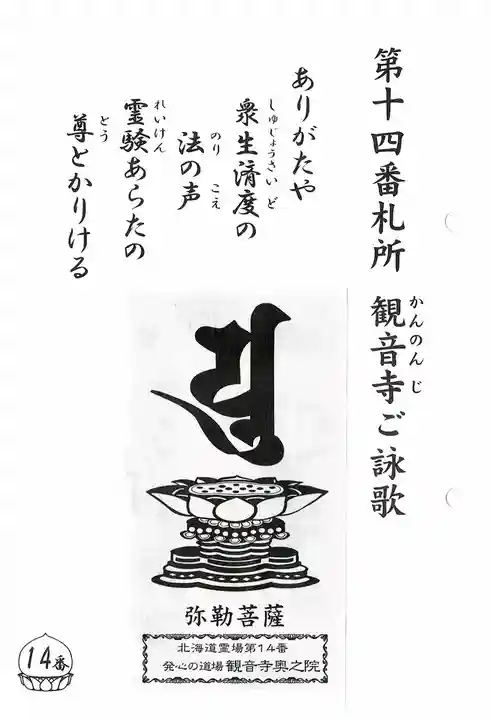 第十四番札所　観音寺ご詠歌
かんのんじ
ありがたや
衆生済度の
しゅじょうさいど
法の声
のり　こえ
霊験あらたの
れいけん
尊とかりける
とう
弥勒菩薩
北海道霊場第14番
発心の道場 観音寺奥之院
14番